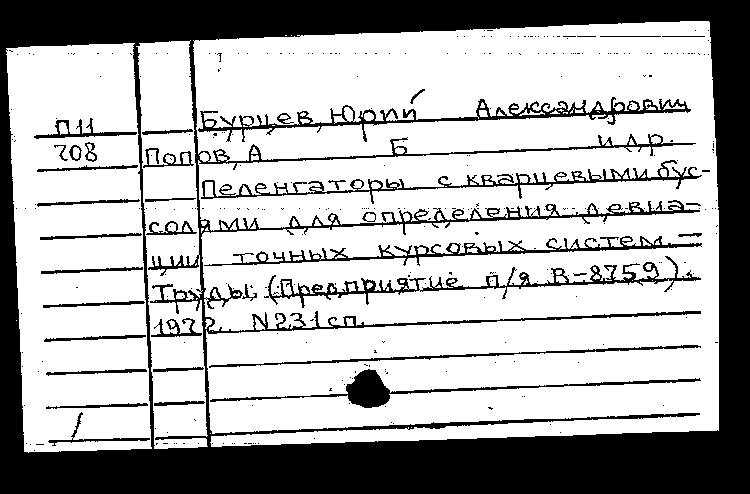 П11 Бурцев, Юрий Александрович
708 Попов, А Б и др.
Пеленгаторы с кварцевыми бус-
солями для определения девиа-
ции точных курсовых систем. —
Труды. (Предприятие п/я В-8759).
1972. N231сп.